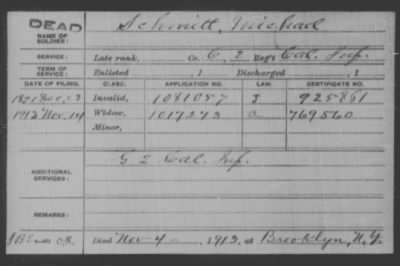 DEAD
NAME OF SOLDIER: Schmitt, Michael
SERVICE: Late rank, Co. C, 2 Reg't Cal. Inf.
TERM OF SERVICE: Enlisted , 1 Discharged , 1
DATE OF FILING. CLASS. APPLICATION NO. LAW. CERTIFICATE NO.
1891 Dec, 23 Invalid, 1081057 J 925861
1913 Nov, 14 Widow, 1017273 769560
Minor,
ADDITIONAL SERVICES: G 2 Cal. Inf.
REMARKS:
Died Nov 4 , 1913, at Brooklyn, N.Y.